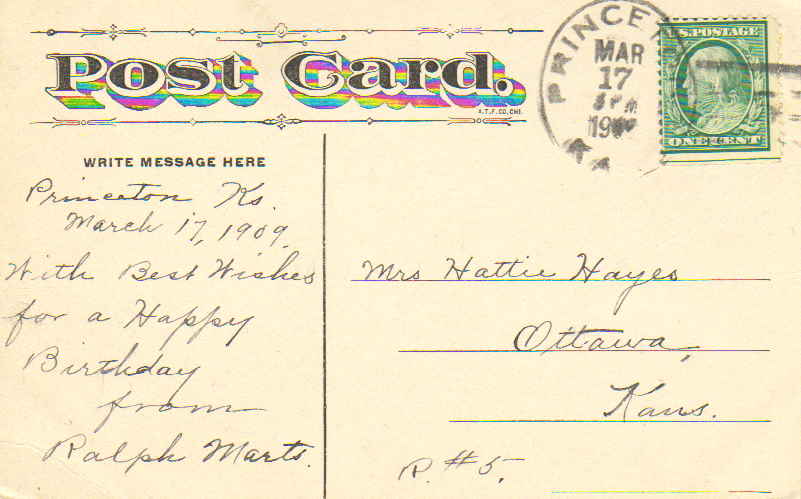 Post Card.
A.T.F. CO. CHI.
PRINCE
MAR
17
3 PM
19
U.S. POSTAGE
ONE CENT
WRITE MESSAGE HERE
Princeton Ks.
March 17, 1909.
With Best Wishes
for a Happy
Birthday
from
Ralph Marts.
Mrs Hattie Hayes
Ottawa,
Kans.
R. #5,